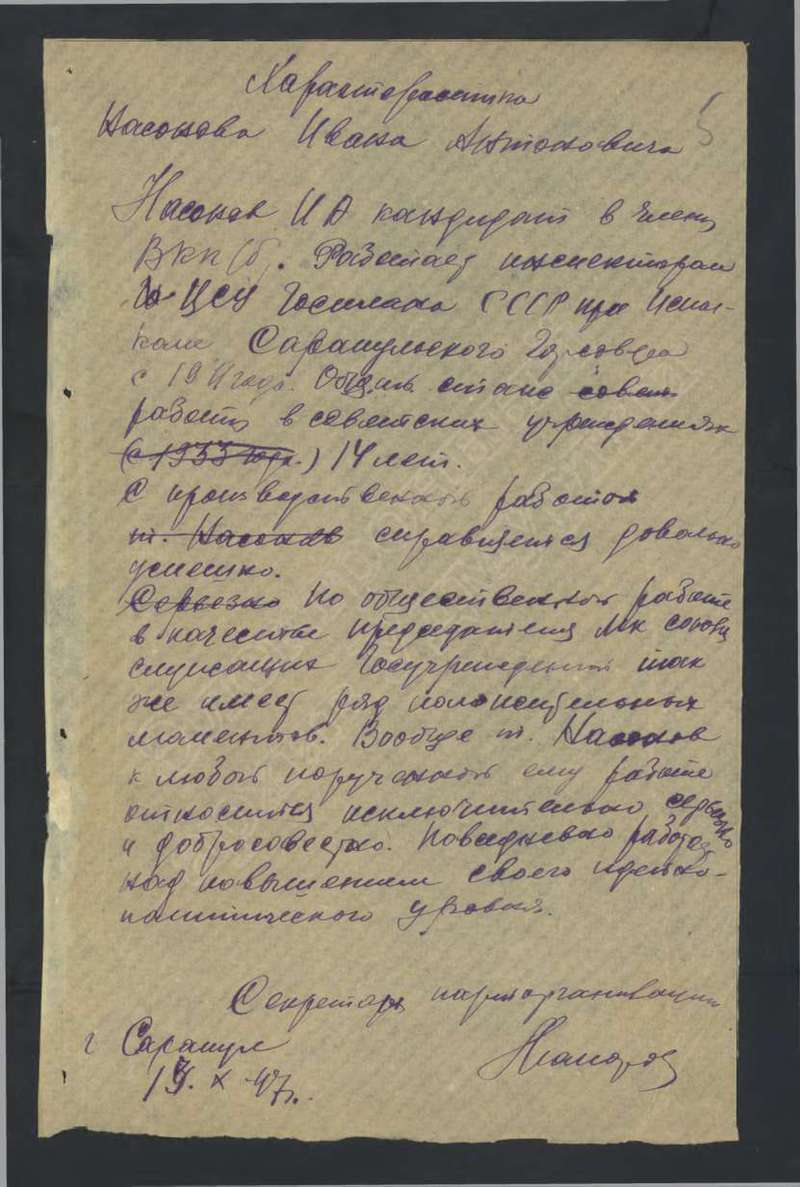 Характеристика
5
Насонова Ивана Антоновича
Насонов И А кандидат в члены
ВКП(б). Работает инспектором
ЦСУ Госплана СССР при Испол-
коме Сарапульского Горсовета
с 1941 года. Общий стаж совет
работы в советских учреждениях
(с 1933 года.) 14 лет.
С производственной работой
т. Насонов справляется довольно
успешно.
Серьезно По общественной работе
в качестве председателя МК союза
служащих Госучреждений так
же имеет ряд положительных
моментов. Вообще т. Насонов
к любой порученной ему работе
относится исключительно серьезно
и добросовестно. Повседневно работает
над повышением своего идейно-
политического уровня.
Секретарь парторганизации
г Сарапул
X 47г.